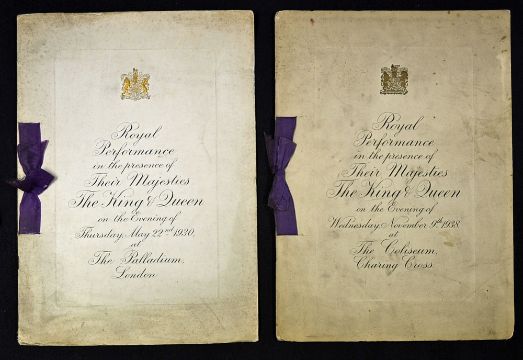 Royal
Performance
in the presence of
Their Majesties
The King & Queen
on the Evening of
Thursday, May 22nd 1930,
at
The Palladium,
London
Royal
Performance
in the presence of
Their Majesties
The King & Queen
on the Evening of
Wednesday, November 9th 1938
at
The Coliseum,
Charing Cross